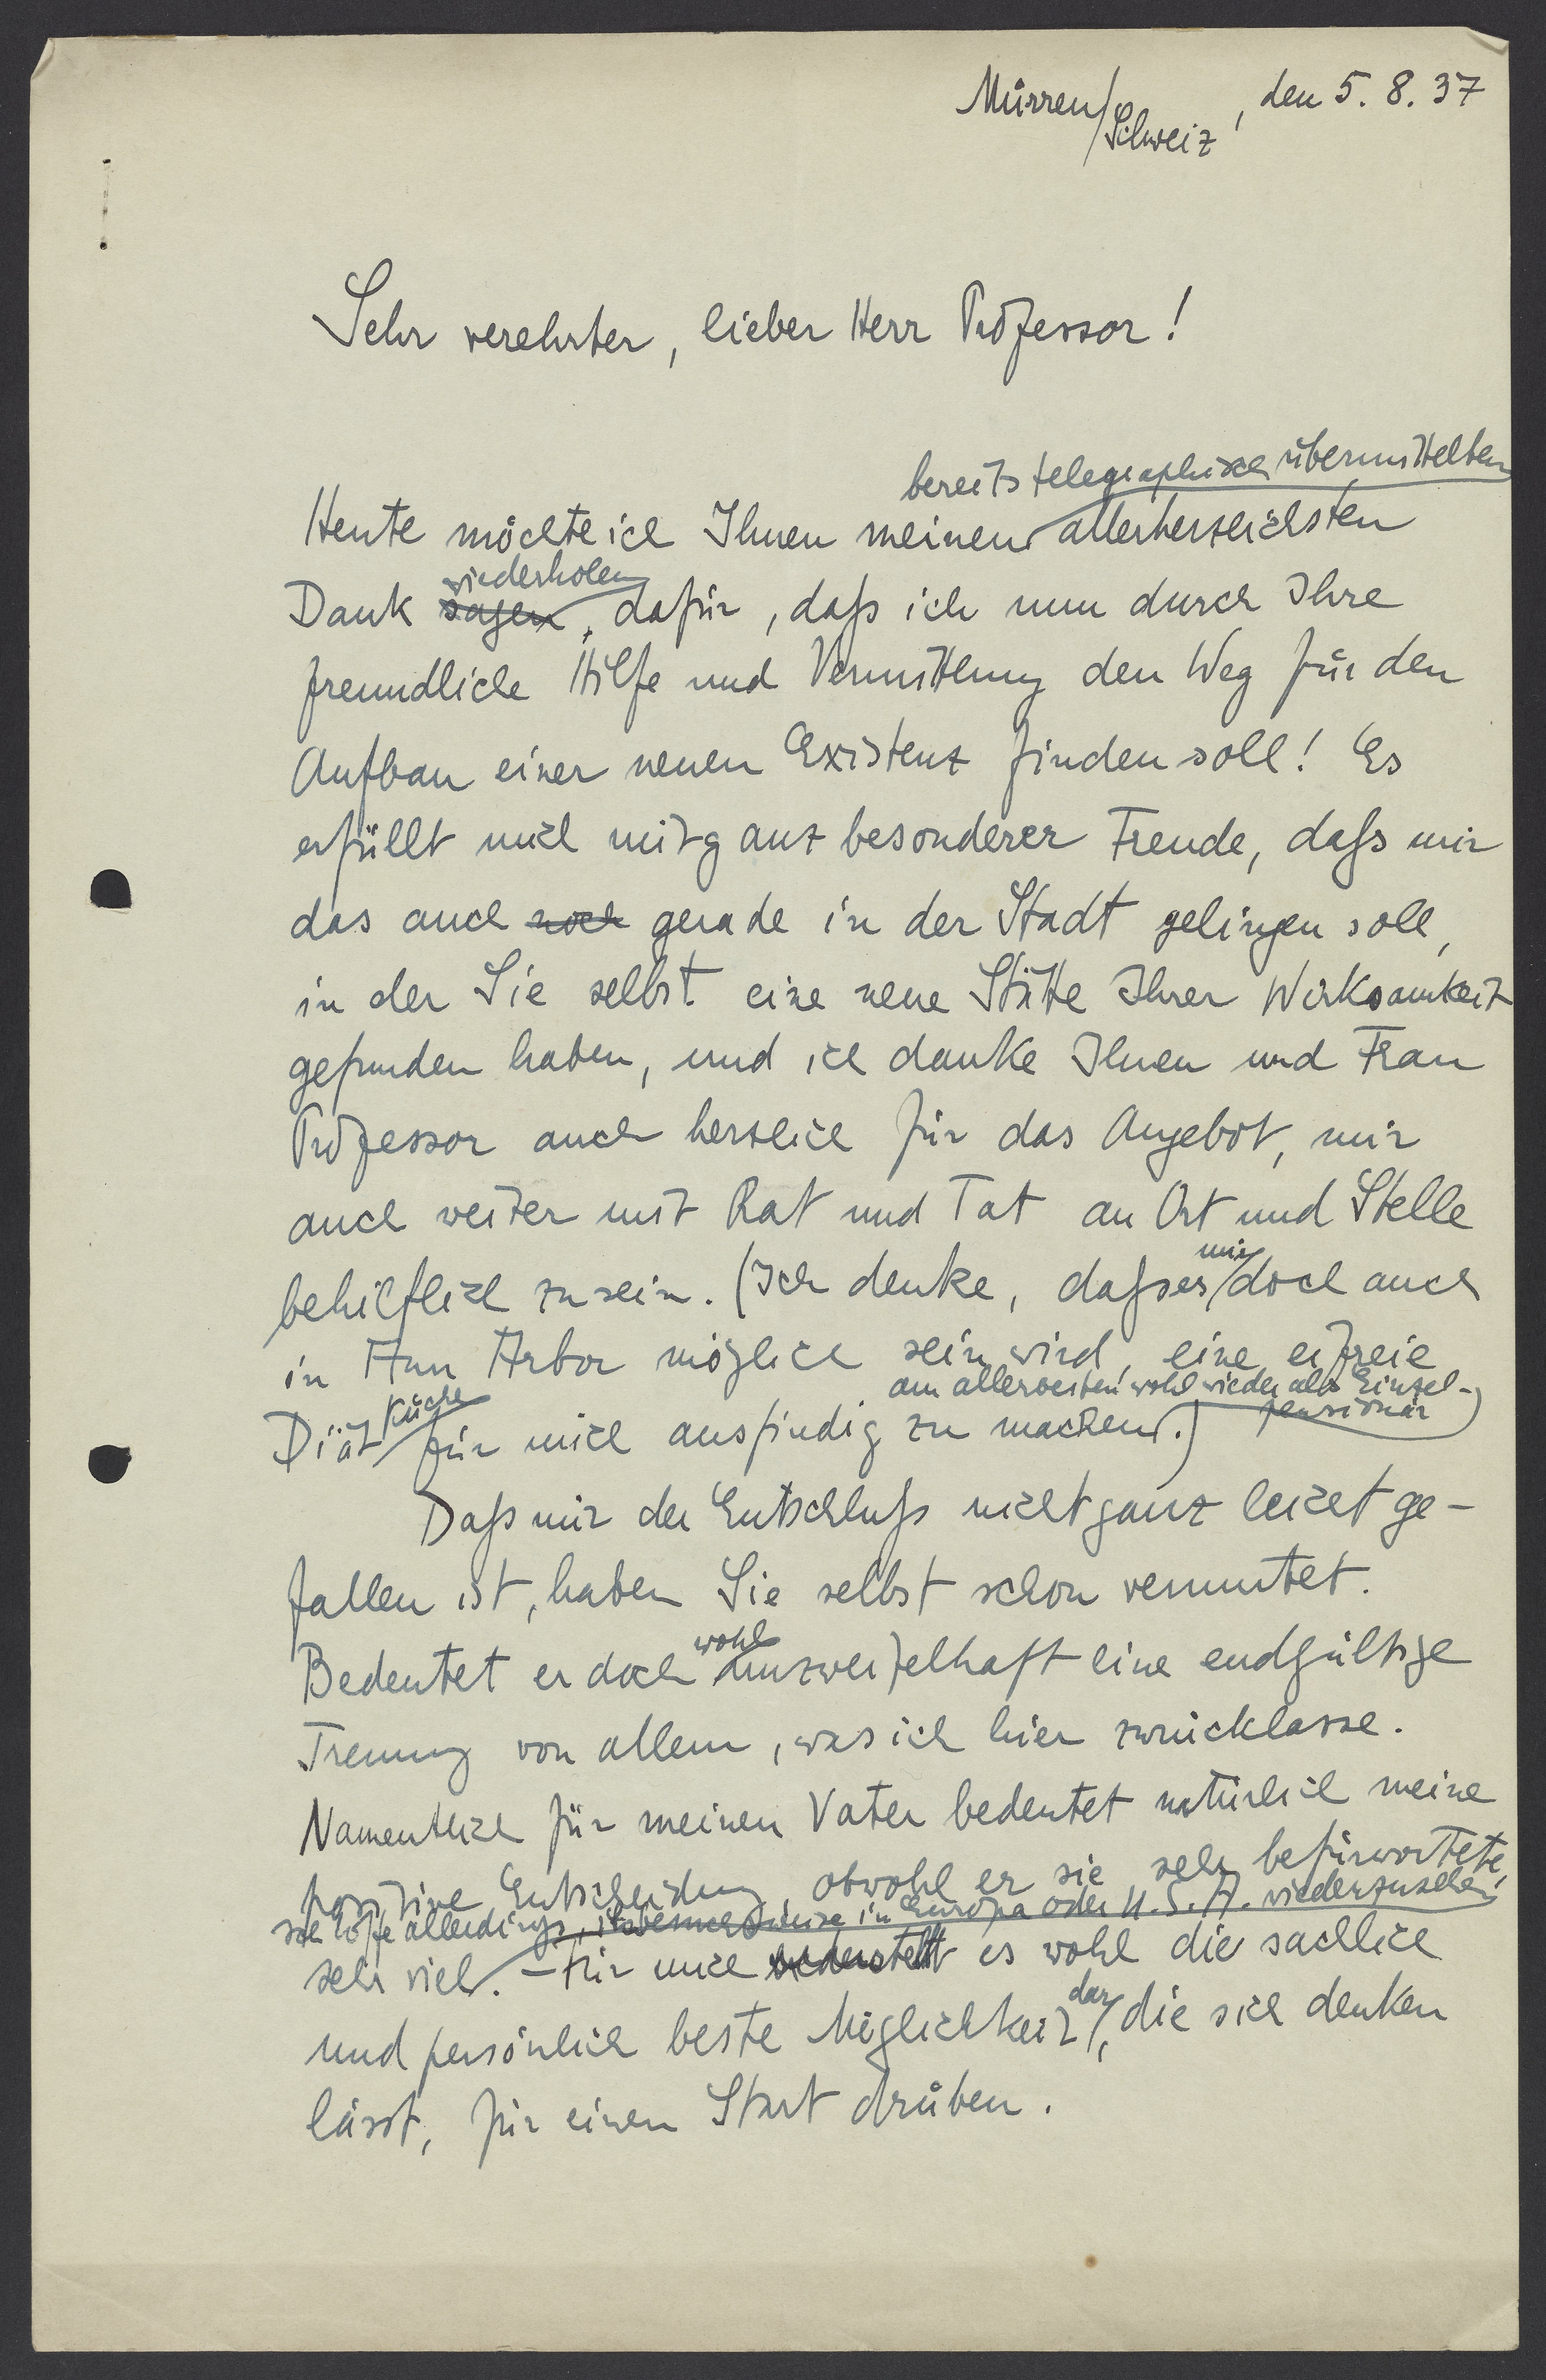 Mürren/Schweiz, den 5. 8. 37
Sehr verehrter, lieber Herr Professor!
bereits telegraphisch übermittelten
Heute möchte ich Ihnen meinen allerherzlichsten
wiederholen
Dank sagen, dafür, daß ich nun durch Ihre
freundliche Hilfe und Vermittlung den Weg für den
Aufbau einer neuen Existenz finden soll! Es
erfüllt mich mit ganz besonderer Freude, daß mir
das auch noch gerade in der Stadt gelingen soll,
in der Sie selbst eine neue Stätte Ihrer Wirksamkeit
gefunden haben, und ich danke Ihnen und Frau
Professor auch herzlich für das Angebot, mir
auch weiter mit Rat und Tat an Ort und Stelle
mir
behilflich zu sein. (Ich denke, daß es doch auch
in Ann Arbor möglich sein wird, eine eifreie
am allerbesten wohl wieder als Einzel-
pensionär)
Küche
Diät für mich ausfindig zu machen.)
Daß mir der Entschluß nicht ganz leicht ge-
fallen ist, haben Sie selbst schon vermutet.
wohl
Bedeutet er doch unzweifelhaft eine endgültige
Trennung von allem, was ich hier zurücklasse.
Namentlich für meinen Vater bedeutet natürlich meine
positive Entscheidung, obwohl er sie sehr befürwortete,
ich hoffe allerdings, ihn besuchsweise in Europa oder U.S.A. wiederzusehen
sehr viel. – Für mich es wohl die sachlich
dar
und persönlich beste Möglichkeit, die sich denken
lässt, für einen Start drüben.